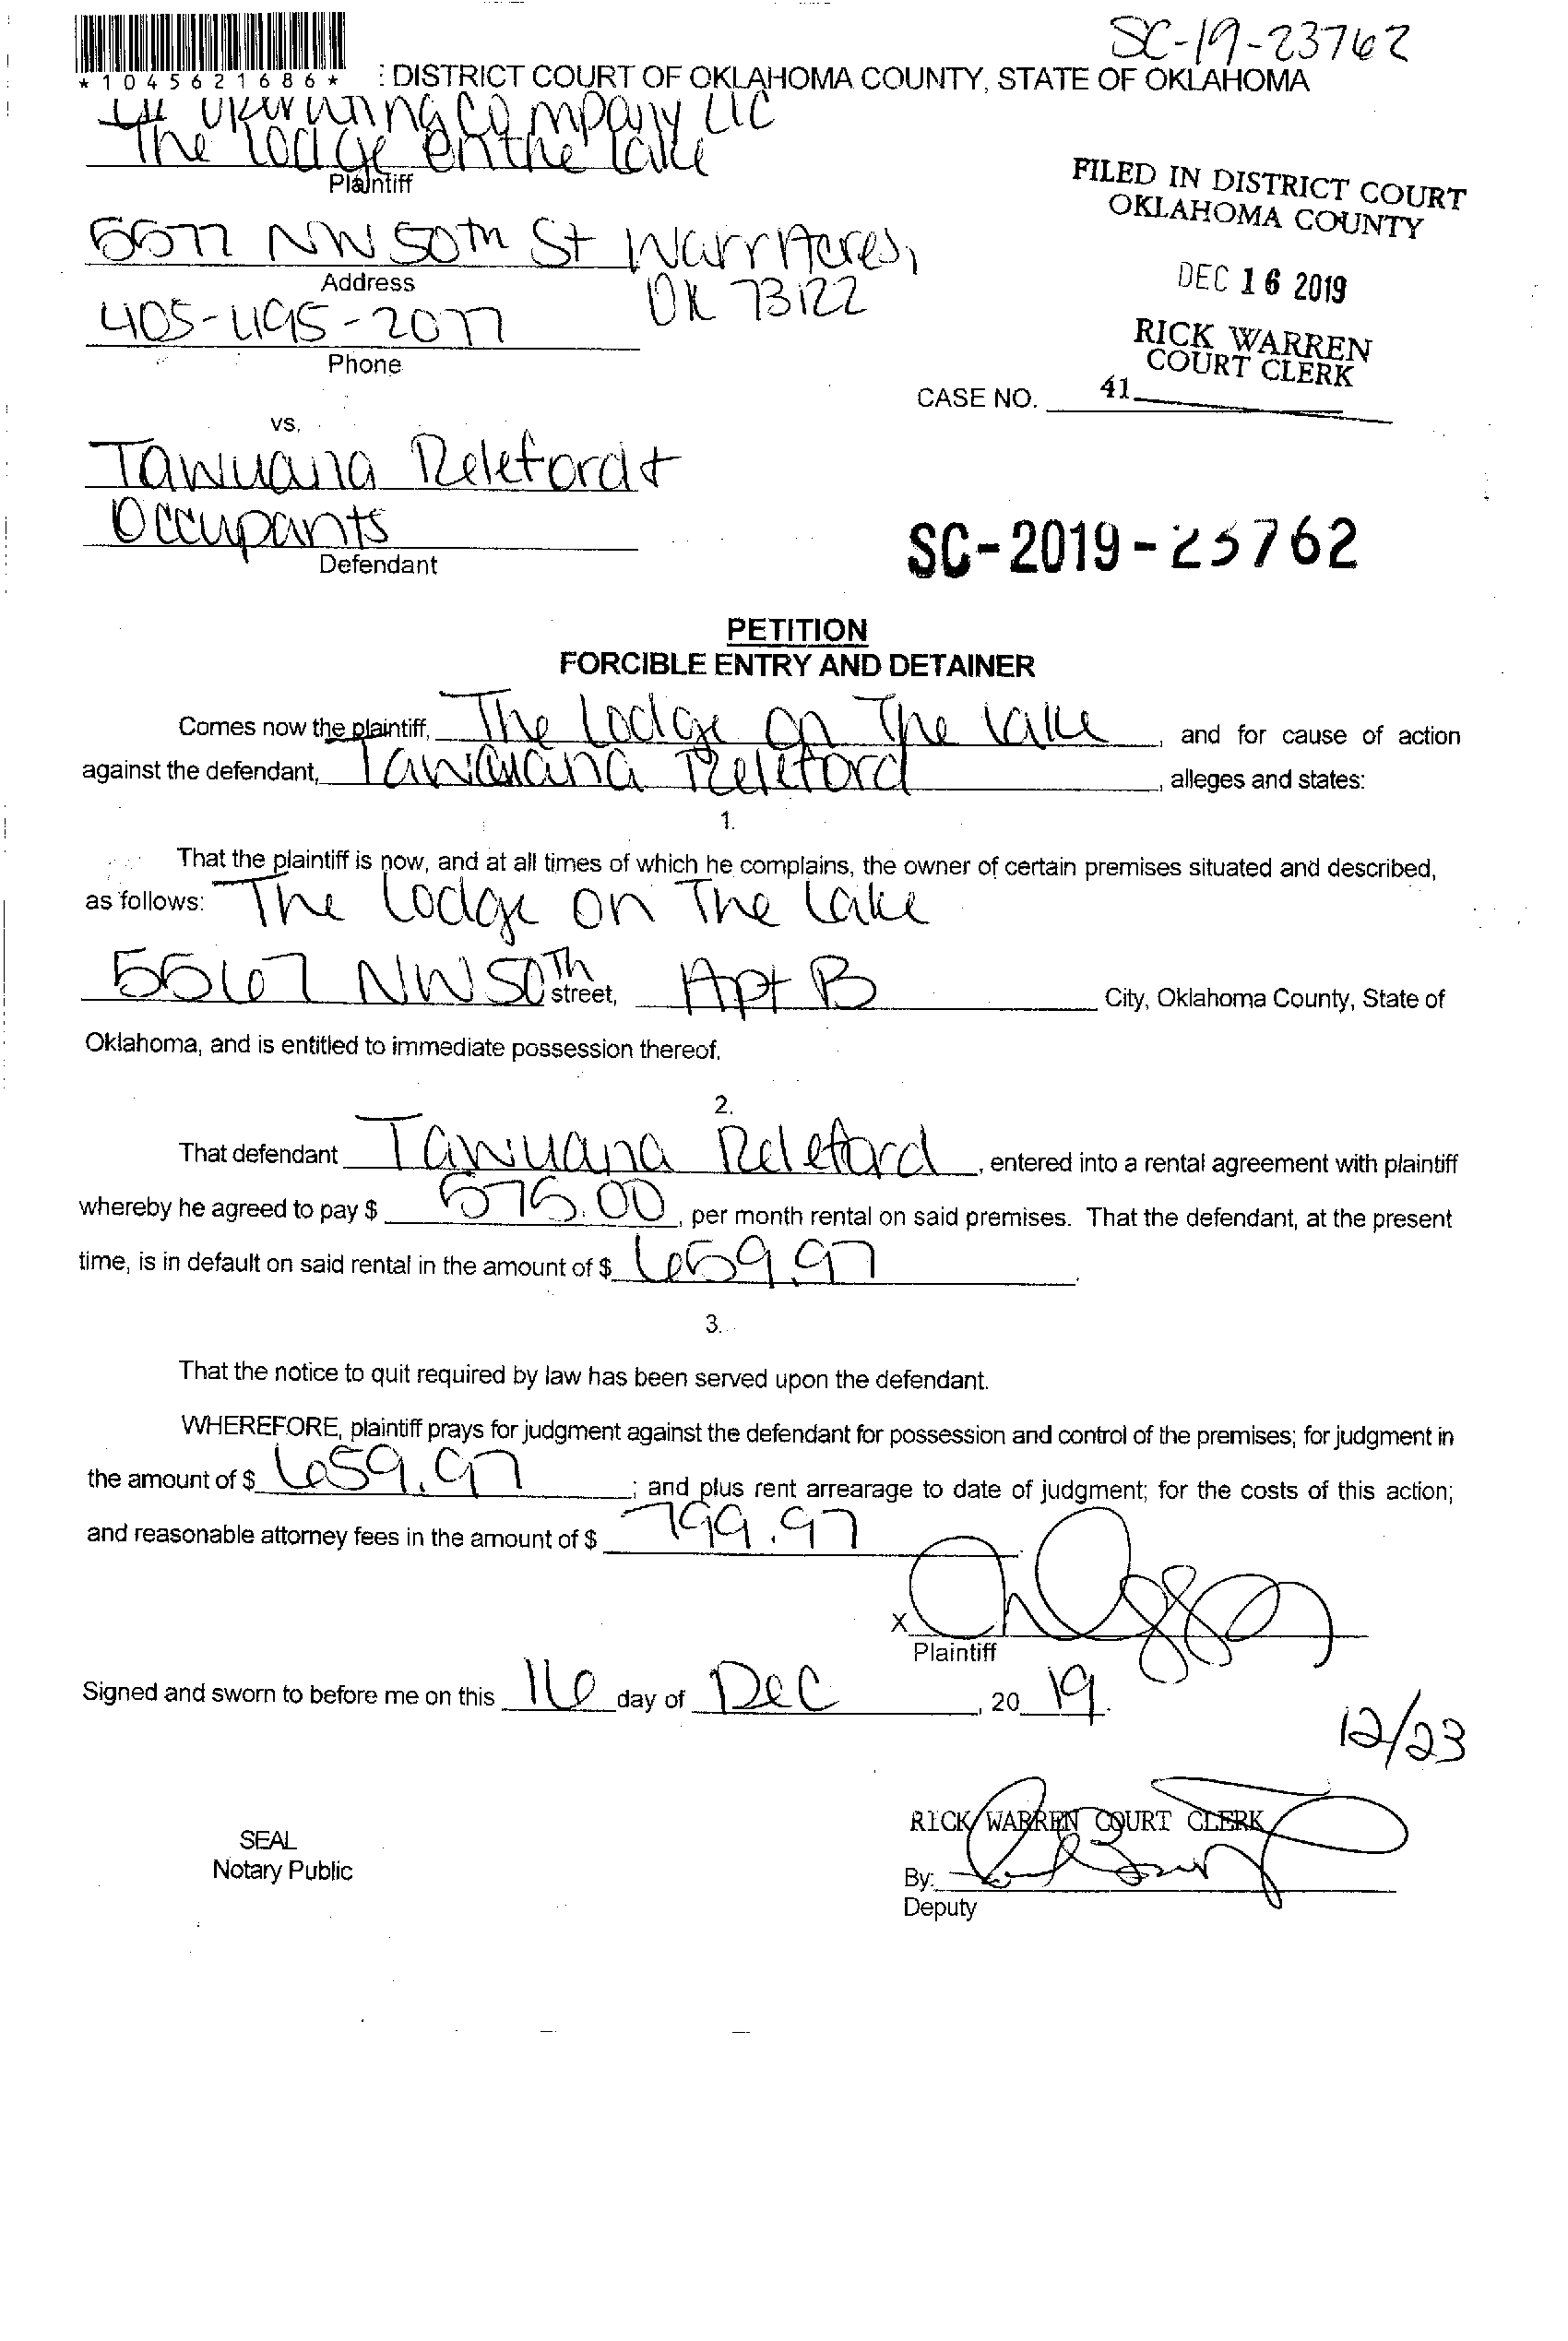 SC-19-23762
*1045621686*
: DISTRICT COURT OF OKLAHOMA COUNTY, STATE OF OKLAHOMA
Company LLC
The Lodge on the Lake
Plaintiff
FILED IN DISTRICT COURT
OKLAHOMA COUNTY
5577 NW 50th St Warr Acres,
Address
OK 73122
DEC 16 2019
405-495-2077
Phone
RICK WARREN
COURT CLERK
CASE NO.
41
vs.
Tawuana Releford +
Occupants
Defendant
SC-2019-23762
PETITION
FORCIBLE ENTRY AND DETAINER
Comes now the plaintiff, The Lodge on The Lake, and for cause of action
against the defendant, Tawuana Releford, alleges and states:
1.
That the plaintiff is now, and at all times of which he complains, the owner of certain premises situated and described,
as follows: The Lodge on The Lake
5567 NW 50Th street, Apt B City, Oklahoma County, State of
Oklahoma, and is entitled to immediate possession thereof.
2.
That defendant Tawuana Releford, entered into a rental agreement with plaintiff
whereby he agreed to pay $ 575.00, per month rental on said premises. That the defendant, at the present
time, is in default on said rental in the amount of $ 659.97.
3.
That the notice to quit required by law has been served upon the defendant.
WHEREFORE, plaintiff prays for judgment against the defendant for possession and control of the premises; for judgment in
the amount of $ 659.97; and plus rent arrearage to date of judgment; for the costs of this action;
and reasonable attorney fees in the amount of $ 799.97.
X
Plaintiff
Signed and sworn to before me on this 16 day of Dec, 20 19.
12/23
RICK WARREN COURT CLERK
SEAL
Notary Public
By:
Deputy